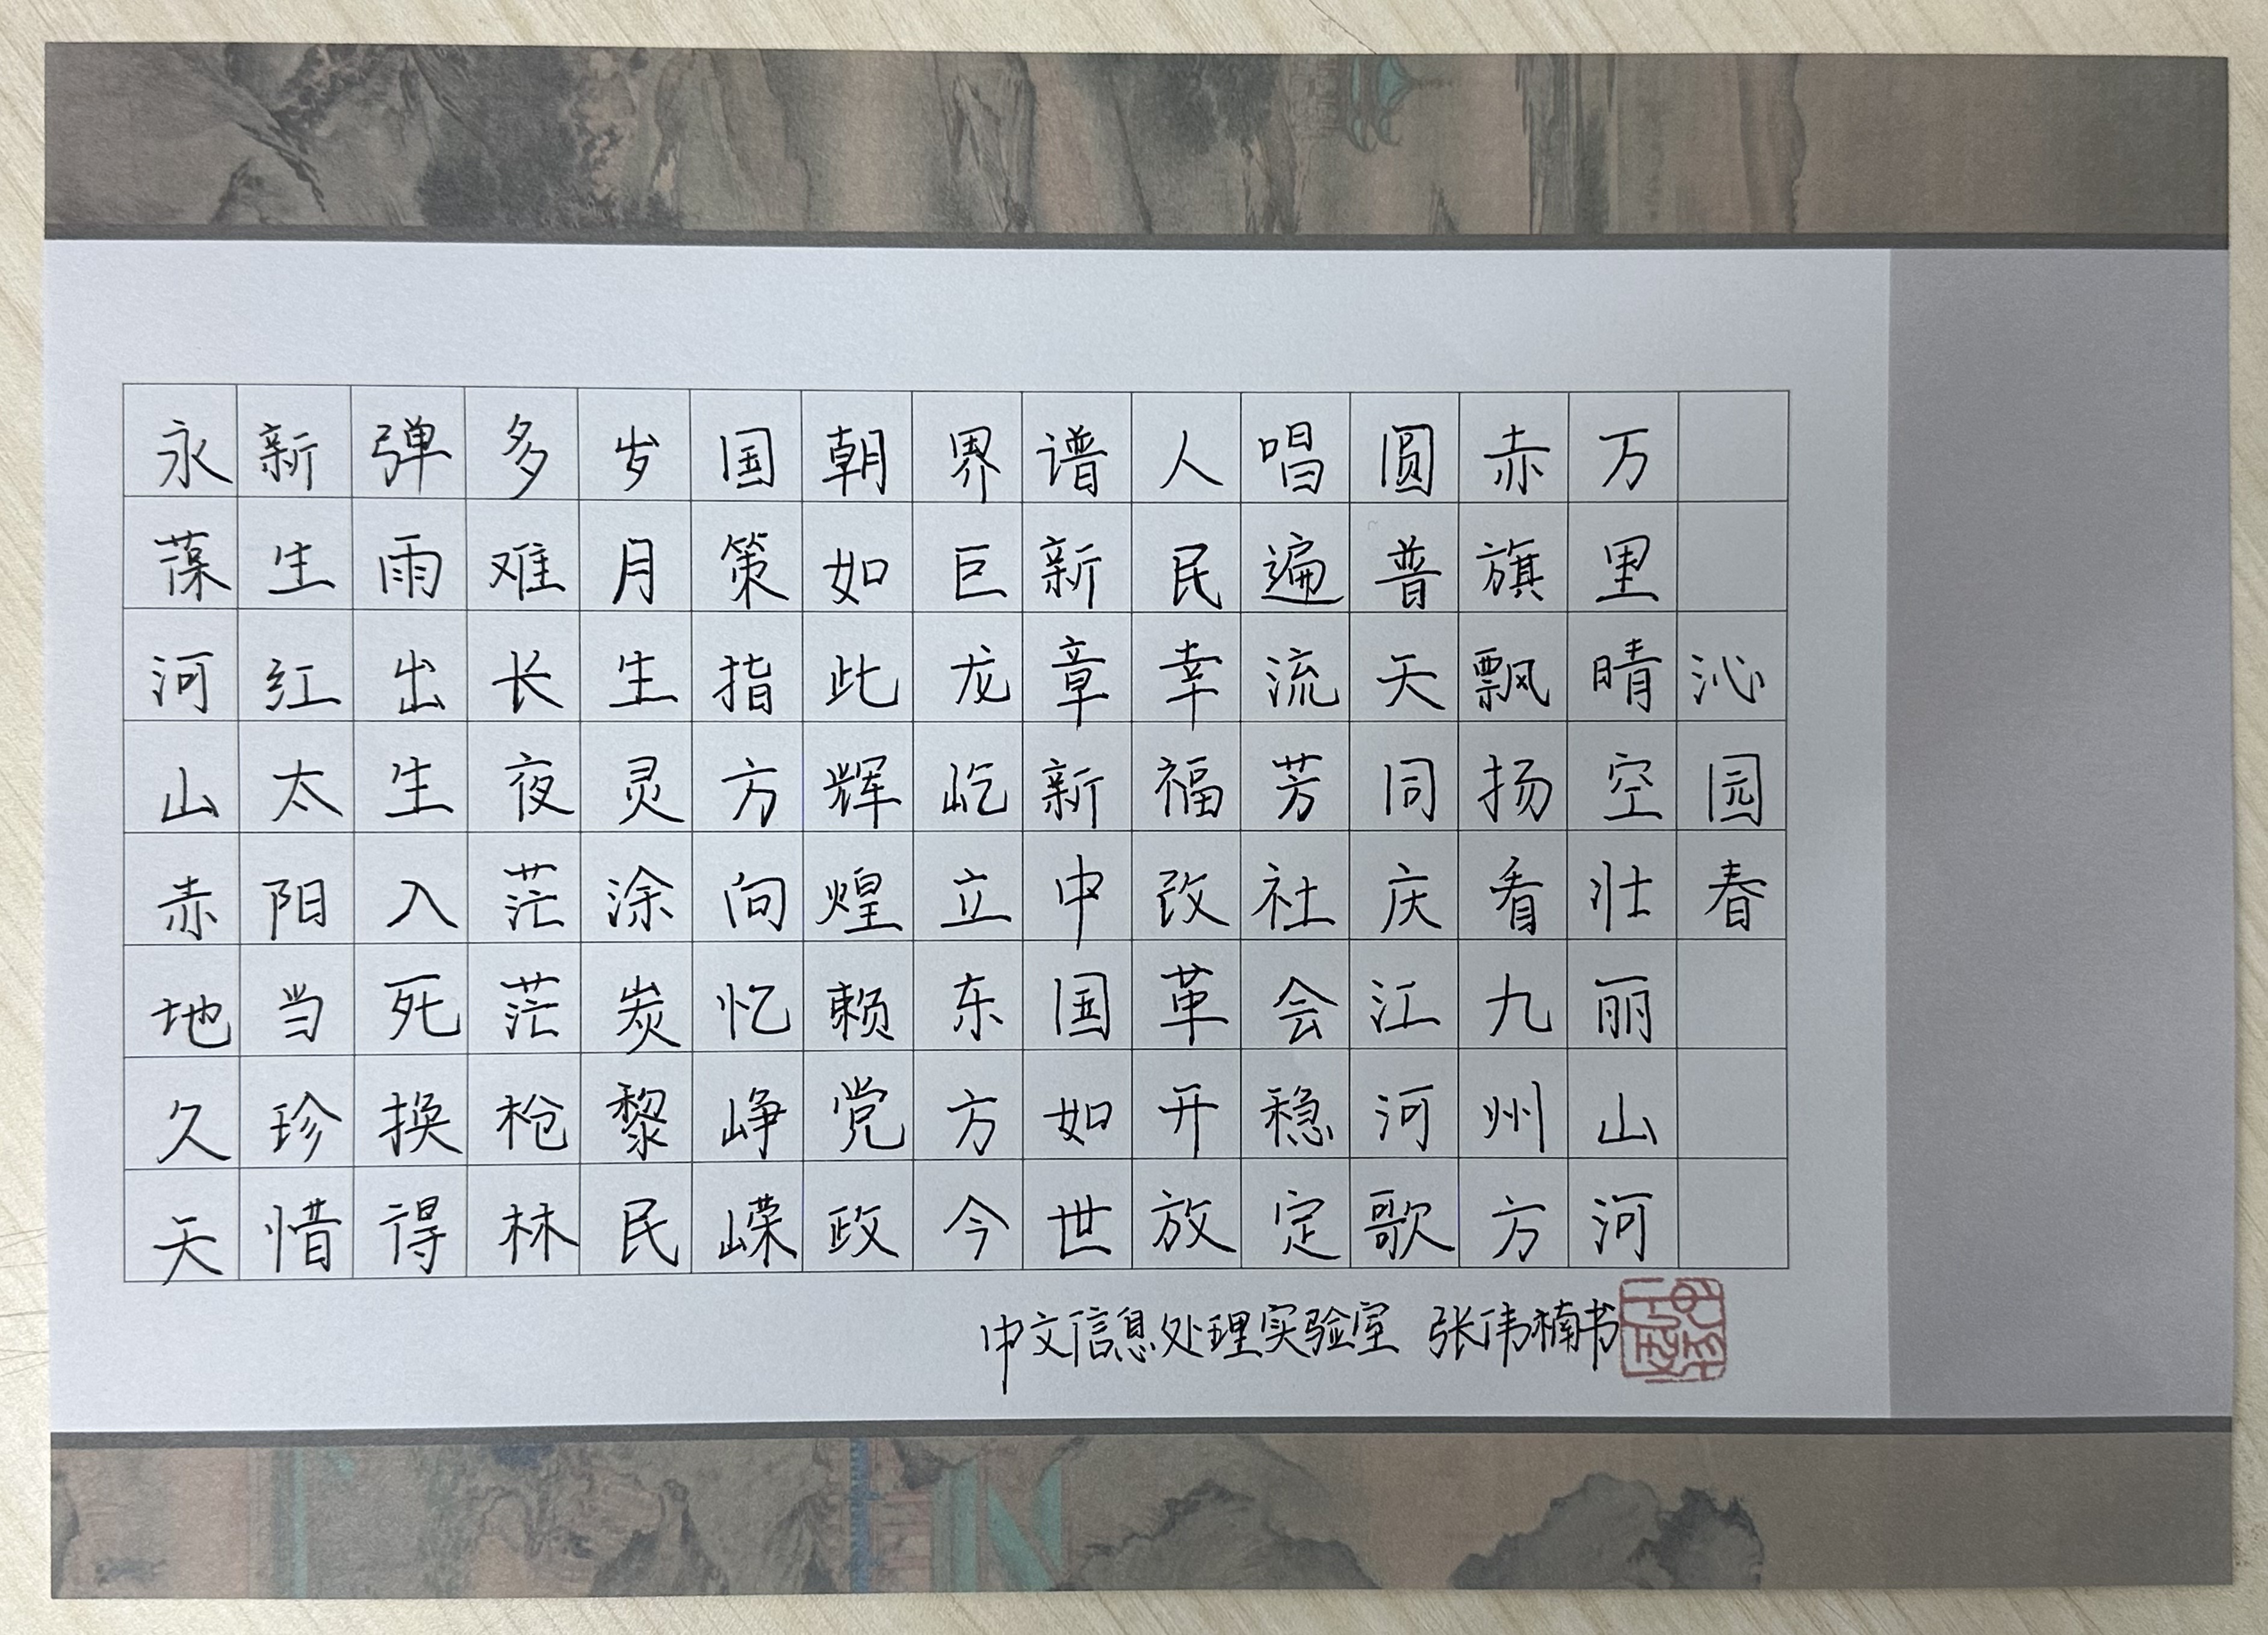 沁园春
万里晴空壮丽山河
赤旗飘扬看九州方
圆普天同庆江河歌
唱遍流芳社会稳定
人民幸福改革开放
谱新章新中国如世
界巨龙屹立东方今
朝如此辉煌赖党政
国策指方向忆峥嵘
岁月生灵涂炭黎民
多难长夜茫茫枪林
弹雨出生入死换得
新生红太阳当珍惜
永葆河山赤地久天
中文信息处理实验室 张伟楠书